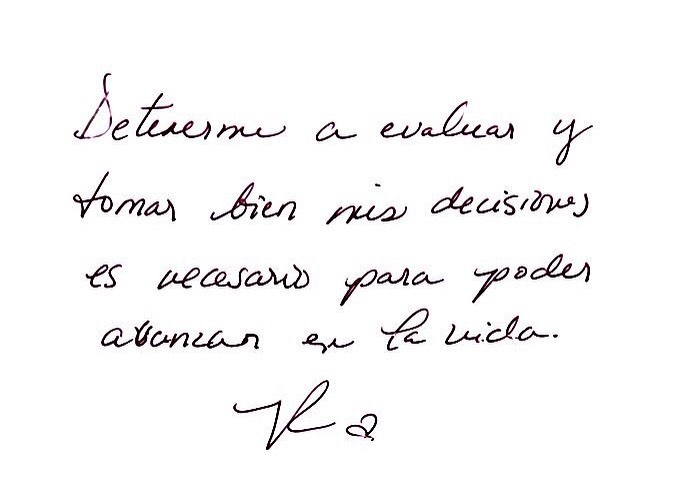 Detenerme a evaluar y
tomar bien mis decisiones
es necesario para poder
avanzar en la vida.